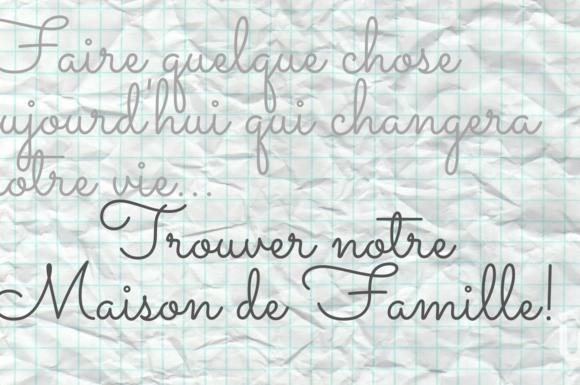 Faire quelque chose
ujourd'hui qui changera
otre vie...
Trouver notre
Maison de Famille!